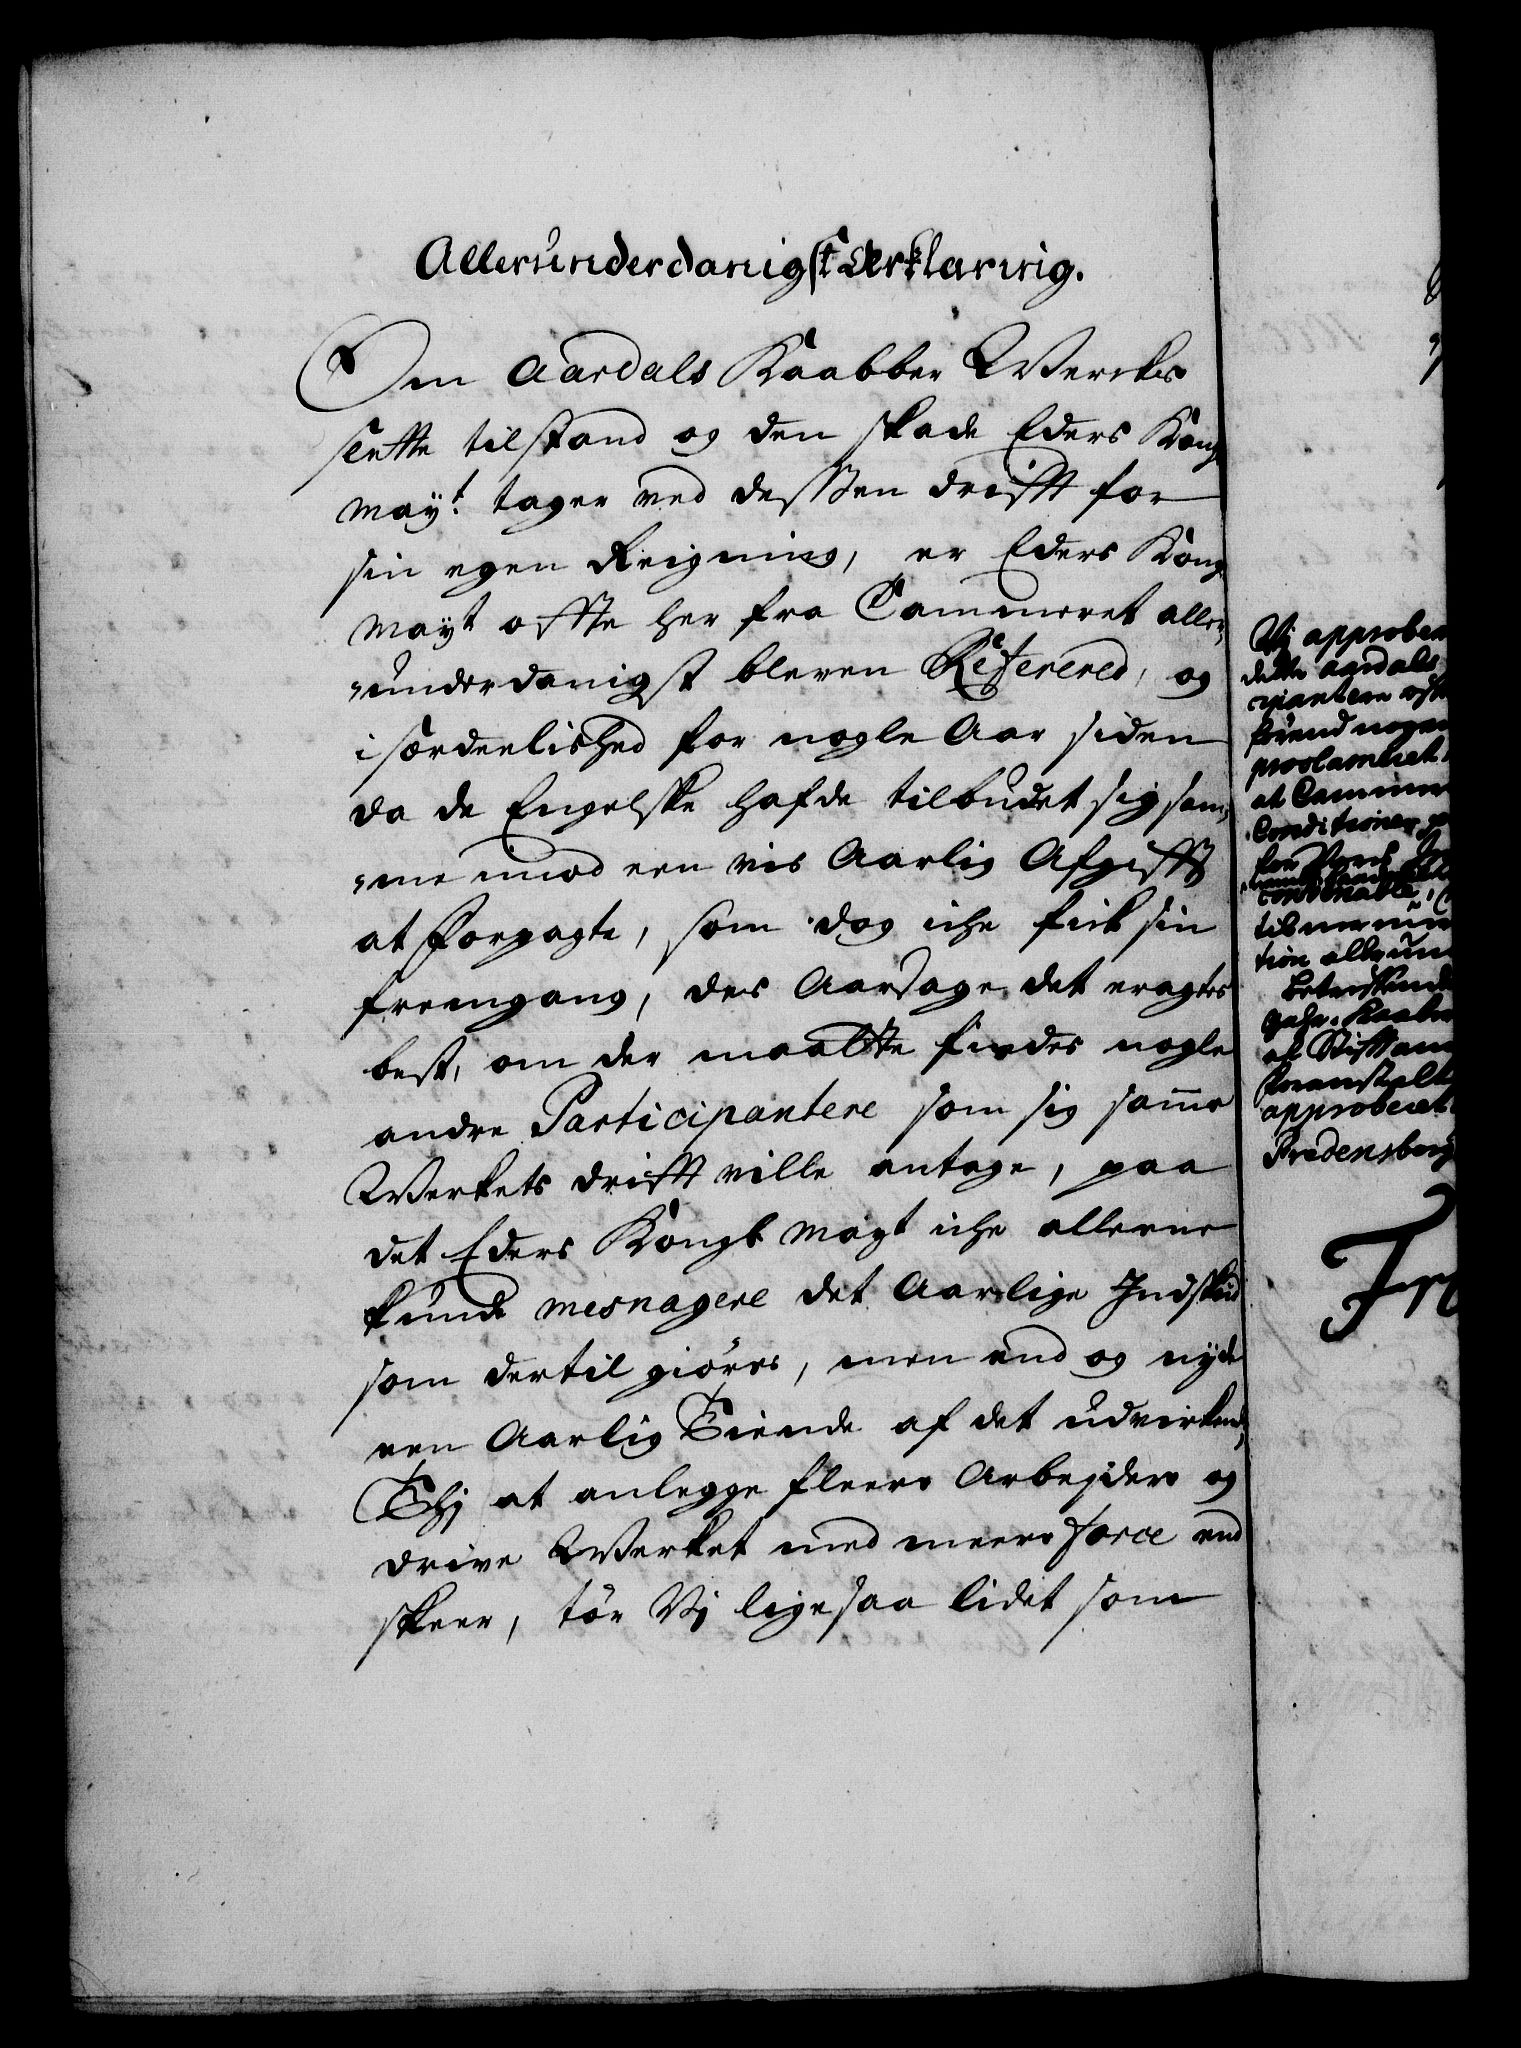 Allerunderdanigst Ærklæring.
Om Aardals Kaabber Werckes
slette tilstand og den skade Eders Kong
mayt. tager ved dessen drifft for
sin egen Reigning, er Eders Kong
mayt offte her fra Cammeret aller,
,,underdanigst bleven Refereret, og
i særdeelished for nogle Aar siden
da de Engelske hafde tilbudet sig sam,
,,me imod een vis Aarlig Afgifft
at forpagte, som dog iche fik sin
fremgang, des Aarsage det eragtes
best, om der maatte findes nogle
andre Participantere som sig samme
Werkets drifft ville antage, paa
det Eders Kongl mayt iche alleene
kunde mesnagere det Aarlige Indskud
som dertil giöres, men end og nyde
een Aarlig Tiende af det udvirkende,
Thj at anlegge fleere Arbejdere og
drive Werket med meere force end
skeer, tör Vj ligesaa lidet som
Vj approber
dette aardals
cipantere
förend nogen
proclameret
at Cammer
Conditioner
for Vores
convenable,
til
tion allerun
Betreffende
Kaaber
at Stifftam
foranstalte
approberet
Fredensborg
Fr